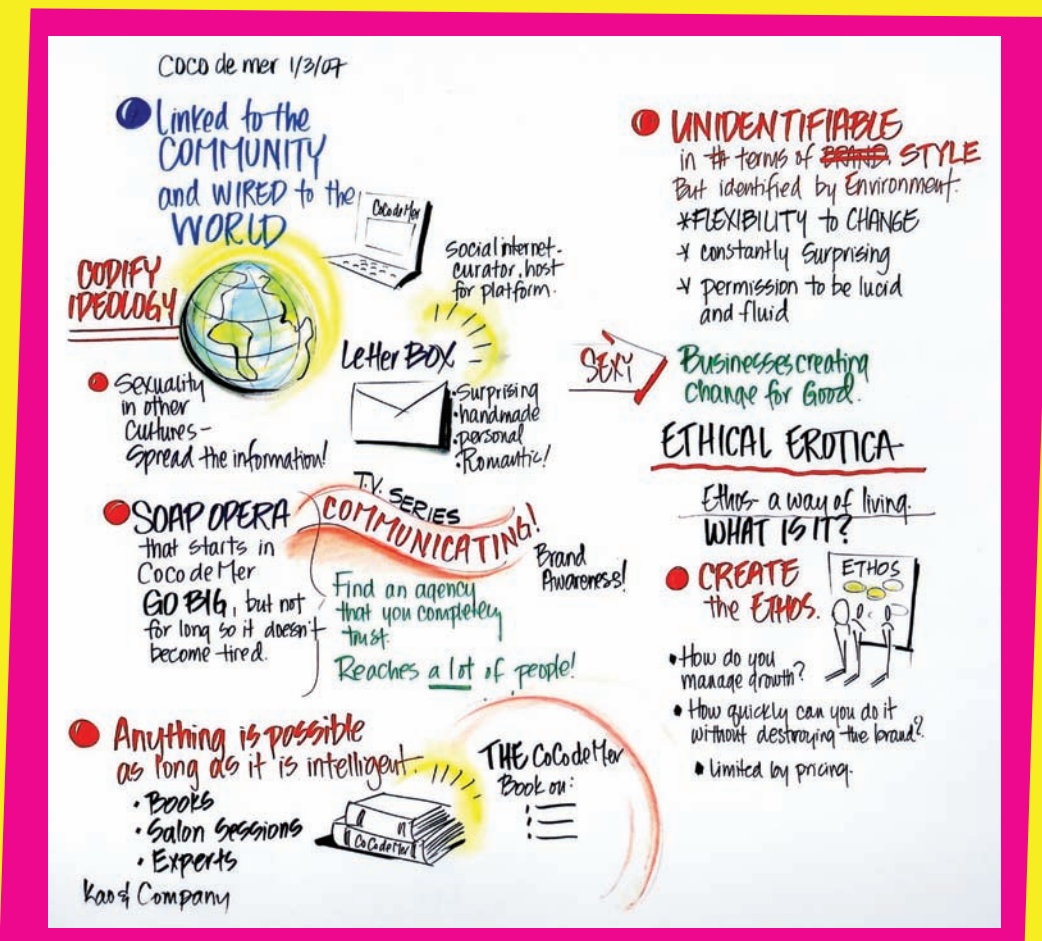 Coco de mer 1/3/07
Linked to the
COMMUNITY
and WIRED to the
WORLD
CoCodeMer
Social internet-
curator, host
for platform.
CODIFY
IDEOLOGY
Letter BOX
•Surprising
•handmade
•personal
•Romantic!
Sexuality
in other
Cultures-
Spread the information!
SOAP OPERA
that starts in
Coco de Mer
GO BIG, but not
for long so it doesn't
become tired.
T.V. SERIES
COMMUNICATING!
Brand
Awareness!
Find an agency
that you completely
trust.
Reaches a lot of people!
Anything is possible
as long as it is intelligent.
• Books
• Salon Sessions
• Experts
CoCodeMer
THE CoCodeMer
Book on:
Kao & Company
UNIDENTIFIABLE
in terms of BRAND STYLE
But identified by Environment.
*FLEXIBILITY to CHANGE
constantly Surprising
permission to be lucid
and fluid
SEXY
Businesses creating
Change for Good.
ETHICAL EROTICA
Ethos- a way of living.
WHAT IS IT?
CREATE
the ETHOS.
ETHOS
• How do you
manage growth?
• How quickly can you do it
without destroying the brand?
• limited by pricing.